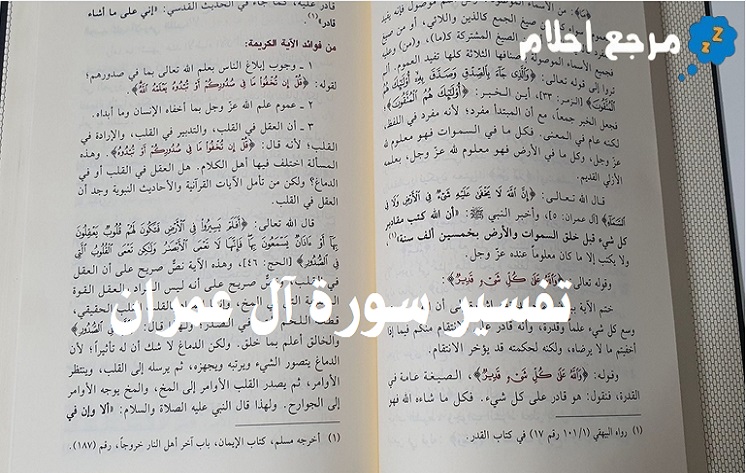 مرجع احلام
«ما»: من الأسماء الموصولة
من صيغ الجمع كالذين واللائي، أو من
الصيغ المشتركة كـ(ما)، و(من) وغيرها
فجميع الأسماء الموصولة بأصنافها الثلاثة كلها تفيد العموم.
ترى إلى قوله تعالى: ﴿وَالَّذِي جَاءَ بِالصِّدْقِ وَصَدَّقَ بِهِ أُولَئِكَ هُمُ
الْمُتَّقُونَ﴾ [الزمر: ٣٣]، أين الخبر: ﴿أُولَئِكَ هُمُ الْمُتَّقُونَ﴾،
فجعل الخبر جمعاً، مع أن المبتدأ مفرد؛ لأنه مفرد في اللفظ،
لكنه عام في المعنى. فكل ما في السموات فهو معلوم لله
عزّ وجل، وكل ما في الأرض فهو معلوم لله عزّ وجل، بعلمه
الأزلي القديم.
قال الله تعالى: ﴿إِنَّ اللَّهَ لَا يَخْفَى عَلَيْهِ شَيْءٌ فِي الْأَرْضِ وَلَا فِي
السَّمَاءِ﴾ [آل عمران: ٥]، وأخبر النبي ﷺ: «أن الله كتب مقادير
كل شيء قبل خلق السموات والأرض بخمسين ألف سنة»(١)،
ولا يكتب إلا ما كان معلوماً عنده عزّ وجل.
وقوله تعالى: ﴿وَاللَّهُ عَلَى كُلِّ شَيْءٍ قَدِيرٌ﴾:
ختم الآية
وسع كل شيء علماً وقدرة، وأنه قادر على الانتقام منكم فيما إذا
أخفيتم ما لا يرضاه، ولكنه لحكمته قد يؤخر الانتقام.
وقوله: ﴿وَاللَّهُ عَلَى كُلِّ شَيْءٍ قَدِيرٌ﴾، الصيغة عامة في
القدرة، فنقول: هو قادر على كل شيء. فكل ما شاءه الله فهو
(١) رواه البيهقي (١٠١/١ رقم ١٧) في كتاب القدر.
قادر عليه، كما جاء في الحديث القدسي: «إني على ما أشاء
قادر»(١).
من فوائد الآية الكريمة:
١ ـ وجوب إبلاغ الناس بعلم الله تعالى بما في صدورهم؛
لقوله: ﴿قُلْ إِن تُخْفُوا مَا فِي صُدُورِكُمْ أَوْ تُبْدُوهُ يَعْلَمْهُ اللَّهُ﴾.
٢ ـ عموم علم الله عزّ وجل بما أخفاه الإنسان وما أبداه.
٣ ـ أن العقل في القلب، والتدبير في القلب، والإرادة في
القلب؛ لأنه قال: ﴿قُلْ إِن تُخْفُوا مَا فِي صُدُورِكُمْ أَوْ تُبْدُوهُ﴾. وهذه
المسألة اختلف فيها أهل الكلام. هل العقل في القلب أو في
الدماغ؟ ولكن من تأمل الآيات القرآنية والأحاديث النبوية وجد أن
العقل في القلب.
قال الله تعالى: ﴿أَفَلَمْ يَسِيرُوا فِي الْأَرْضِ فَتَكُونَ لَهُمْ قُلُوبٌ يَعْقِلُونَ
بِهَا أَوْ آذَانٌ يَسْمَعُونَ بِهَا فَإِنَّهَا لَا تَعْمَى الْأَبْصَارُ وَلَكِن تَعْمَى الْقُلُوبُ الَّتِي
فِي الصُّدُورِ﴾ [الحج: ٤٦]، وهذه الآية نصّ صريح على أن العقل
في القلب، ونصّ صريح على أنه ليس المراد بالعقل القوة
التي في المخ، القلب الحقيقي،
قال: ﴿فِي الصُّدُورِ﴾
والخالق أعلم بما خلق. ولكن الدماغ لا شك أن له تأثيراً؛ لأن
الدماغ يتصور الشيء ويرتبه ويجهزه، ثم يرسله إلى القلب، وينتظر
الأوامر، ثم يصدر القلب الأوامر إلى المخ، والمخ يوجه الأوامر
إلى الجوارح. ولهذا قال النبي عليه الصلاة والسلام: «ألا وإن في
(١) أخرجه مسلم، كتاب الإيمان، باب آخر أهل النار خروجاً، رقم (١٨٧).
تفسير سورة آل عمران